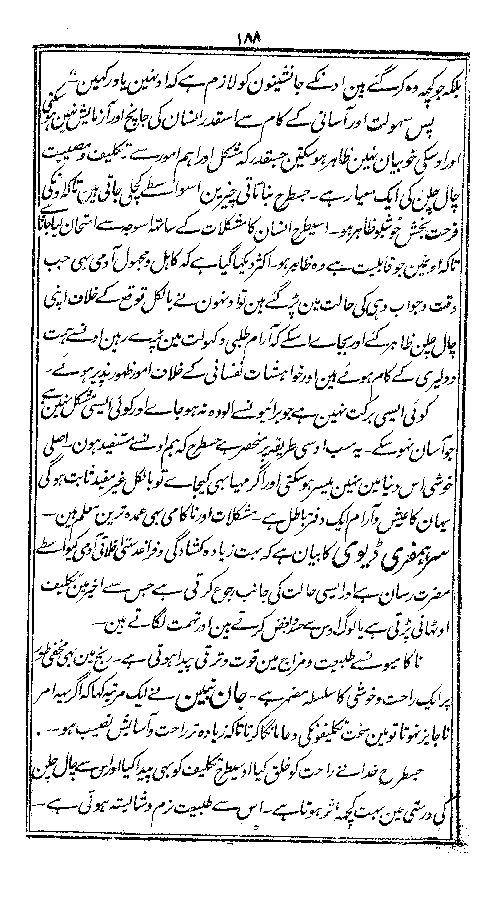 ۱۸۸
بلکہ جو کچھ وہ کر گئے ہین اونکے جانشینون کو لازم ہے کہ اونہین یاد رکھین"
پس سہولت اور آسانی کے کام سے اسقدر انسان کی جانچ اور آزمایش نہین ہو سکتی
اور اوسکی خوبیان نہین ظاہر ہو سکتین جسقدر کہ مشکل اور اہم امور سے۔ تکلیف و مصیبت
چال چلن کی ایک معیار ہے۔ جسطرح نباتاتی چیزین اسواسطے کچلی جاتی ہین تاکہ اونکی
فرحت بخش خوشبو ظاہر ہو۔ اسیطرح انسان کا مشکلات کے ساتھ اسوجہ سے امتحان کیا جاتا ہے
تاکہ اوسمین جو قابلیت ہے وہ ظاہر ہو۔ اکثر دیکھا گیا ہے کہ کاہل و مجہول آدمی بھی جب
وقت و جواب دہی کی حالت مین پڑ گئے ہین تو اونہون نے بالکل توقع کے خلاف اپنی
چال چلن ظاہر کئے اور بجاے اسکے کہ آرام طلبی و کہولت مین پڑے رہین اونسے ہمت
و دلیری کے کام ہوئے ہین اور خواہشات نفسانی کے خلاف امور ظہور پذیر ہوئے۔
کوئی ایسی برکت نہین ہے جو برائیونسے آلودہ نہ ہو جاے اور کوئی ایسی مشکل نہین ہے
جو آسان نہو سکے۔ یہ سب اوسی طریقہ پر منحصر ہے جسطرح کہ ہم اونسے مستفید ہون۔ اصلی
خوشی اس دنیا مین نہین میسر ہو سکتی اور اگر مہیا بھی کیجاے تو بالکل غیر مفید ثابت ہو گی
یہان کا عیش و آرام ایک دفتر باطل ہے۔ مشکلات اور ناکامی ہی عمدہ ترین معلم ہین۔
سر ہمفری ڈیوی کا بیان ہے کہ بہت زیادہ کشادگی و خواعد سنی خلاقی آدمی کیواسطے
مضرت رسان ہے اور ایسی حالت کی جانب رجوع کرتی ہے جس سے اخیر مین تکلیف
اوٹھانی پڑتی ہے یا لوگ اوس سے حسد و بغض کرتے ہین اور تہمت لگاتے ہین۔
ناکامیونسے طبیعت و مزاج مین قوت و ترقی پیدا ہوتی ہے۔ رنج مین بھی مخفی طور
پر ایک راحت و خوشی کا سلسلہ مضمر ہے۔ جان بنین نے ایک مرتبہ کہا کہ اگر یہ امر
ناجایز نہوتا تو مین سخت تکلیفونکی دعا مانگا کرتا تاکہ زیادہ تر راحت و آسایش نصیب ہو۔
جسطرح خدا نے راحت کو خلق کیا اوسیطرح تکلیف کو بھی پیدا کیا اور اس سے چال چلن
کی درستی مین بہت کچھ اثر ہوتا ہے۔ اس سے طبیعت نرم و شایستہ ہوتی ہے۔